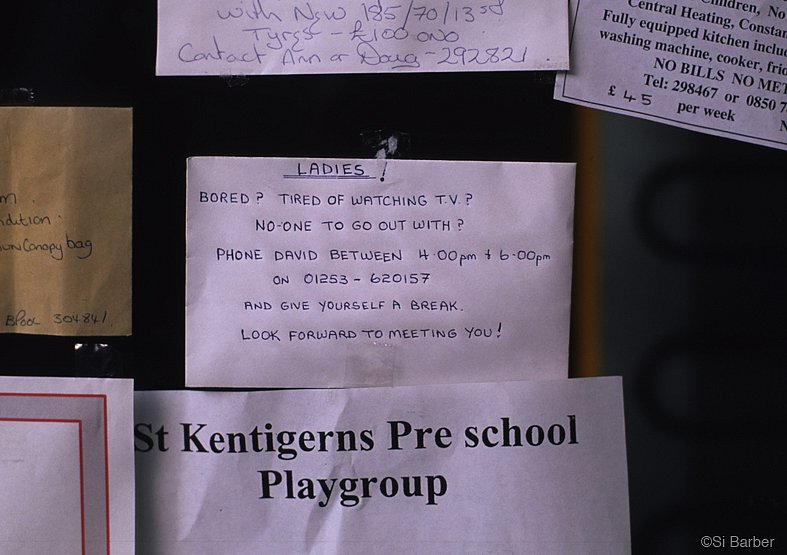 with New 185/70/13"
Tyres - £100 ono
Contact Ann or Doug - 292821
Children, No
Central Heating, Constan
Fully equipped kitchen inclu
washing machine, cooker, frid
NO BILLS NO MET
Tel: 298467 or 0850 7
£45 per week
N
m.
ndition.
Canopy bag
BPOOL 304841
LADIES!
BORED? TIRED OF WATCHING T.V.?
NO-ONE TO GO OUT WITH?
PHONE DAVID BETWEEN 4.00pm & 6.00pm
ON 01253 - 620157
AND GIVE YOURSELF A BREAK.
LOOK FORWARD TO MEETING YOU!
St Kentigerns Pre school
Playgroup
©Si Barber